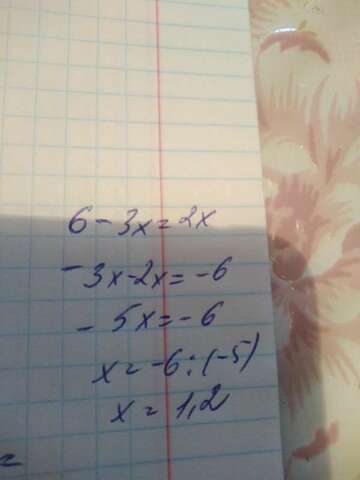 6 - 3x = 2x
- 3x - 2x = - 6
- 5x = - 6
x = - 6 : (-5)
x = 1,2
=